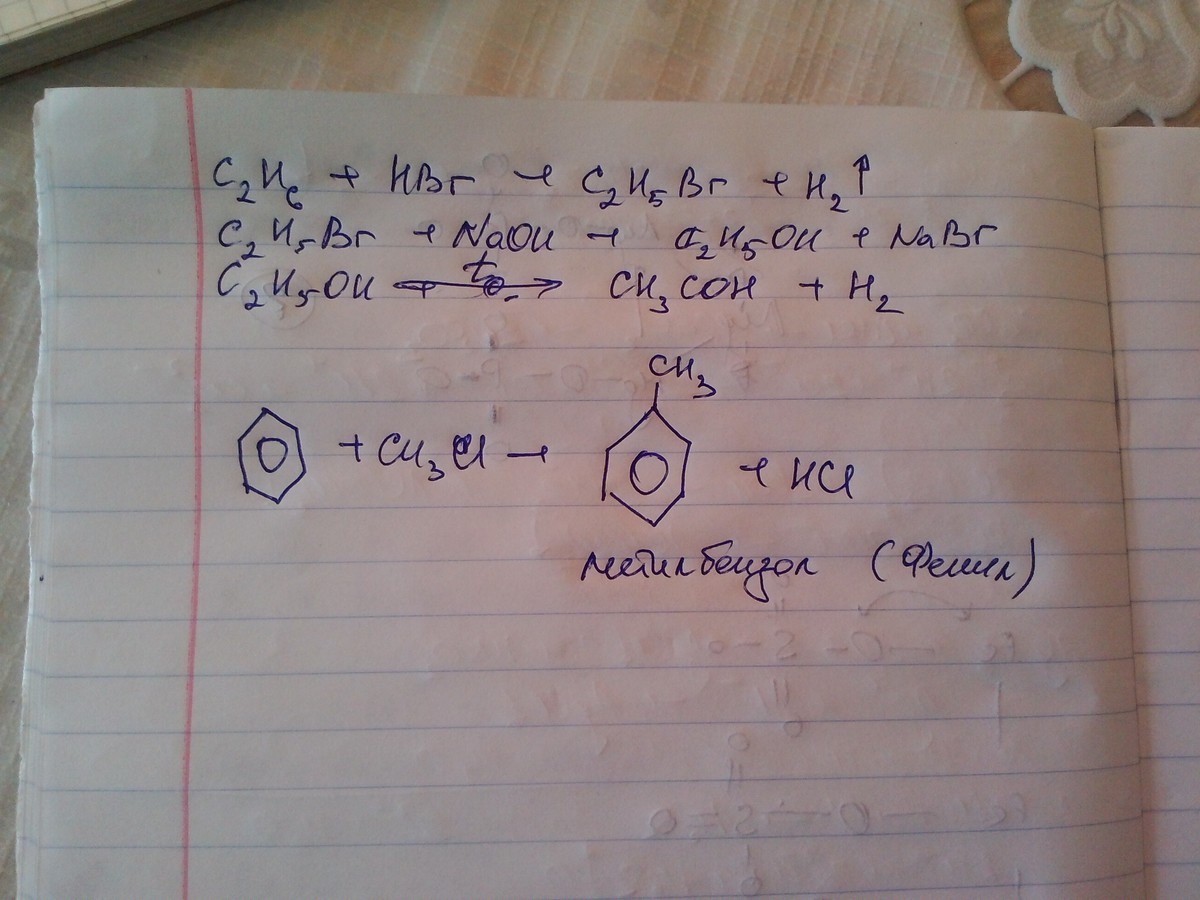 C₂H₆ + HBr → C₂H₅Br + H₂↑
C₂H₅Br + NaOH → C₂H₅OH + NaBr
C₂H₅OH →t° CH₃COH + H₂
CH₃
+ CH₃Cl → + HCl
метилбензол (Фенил)